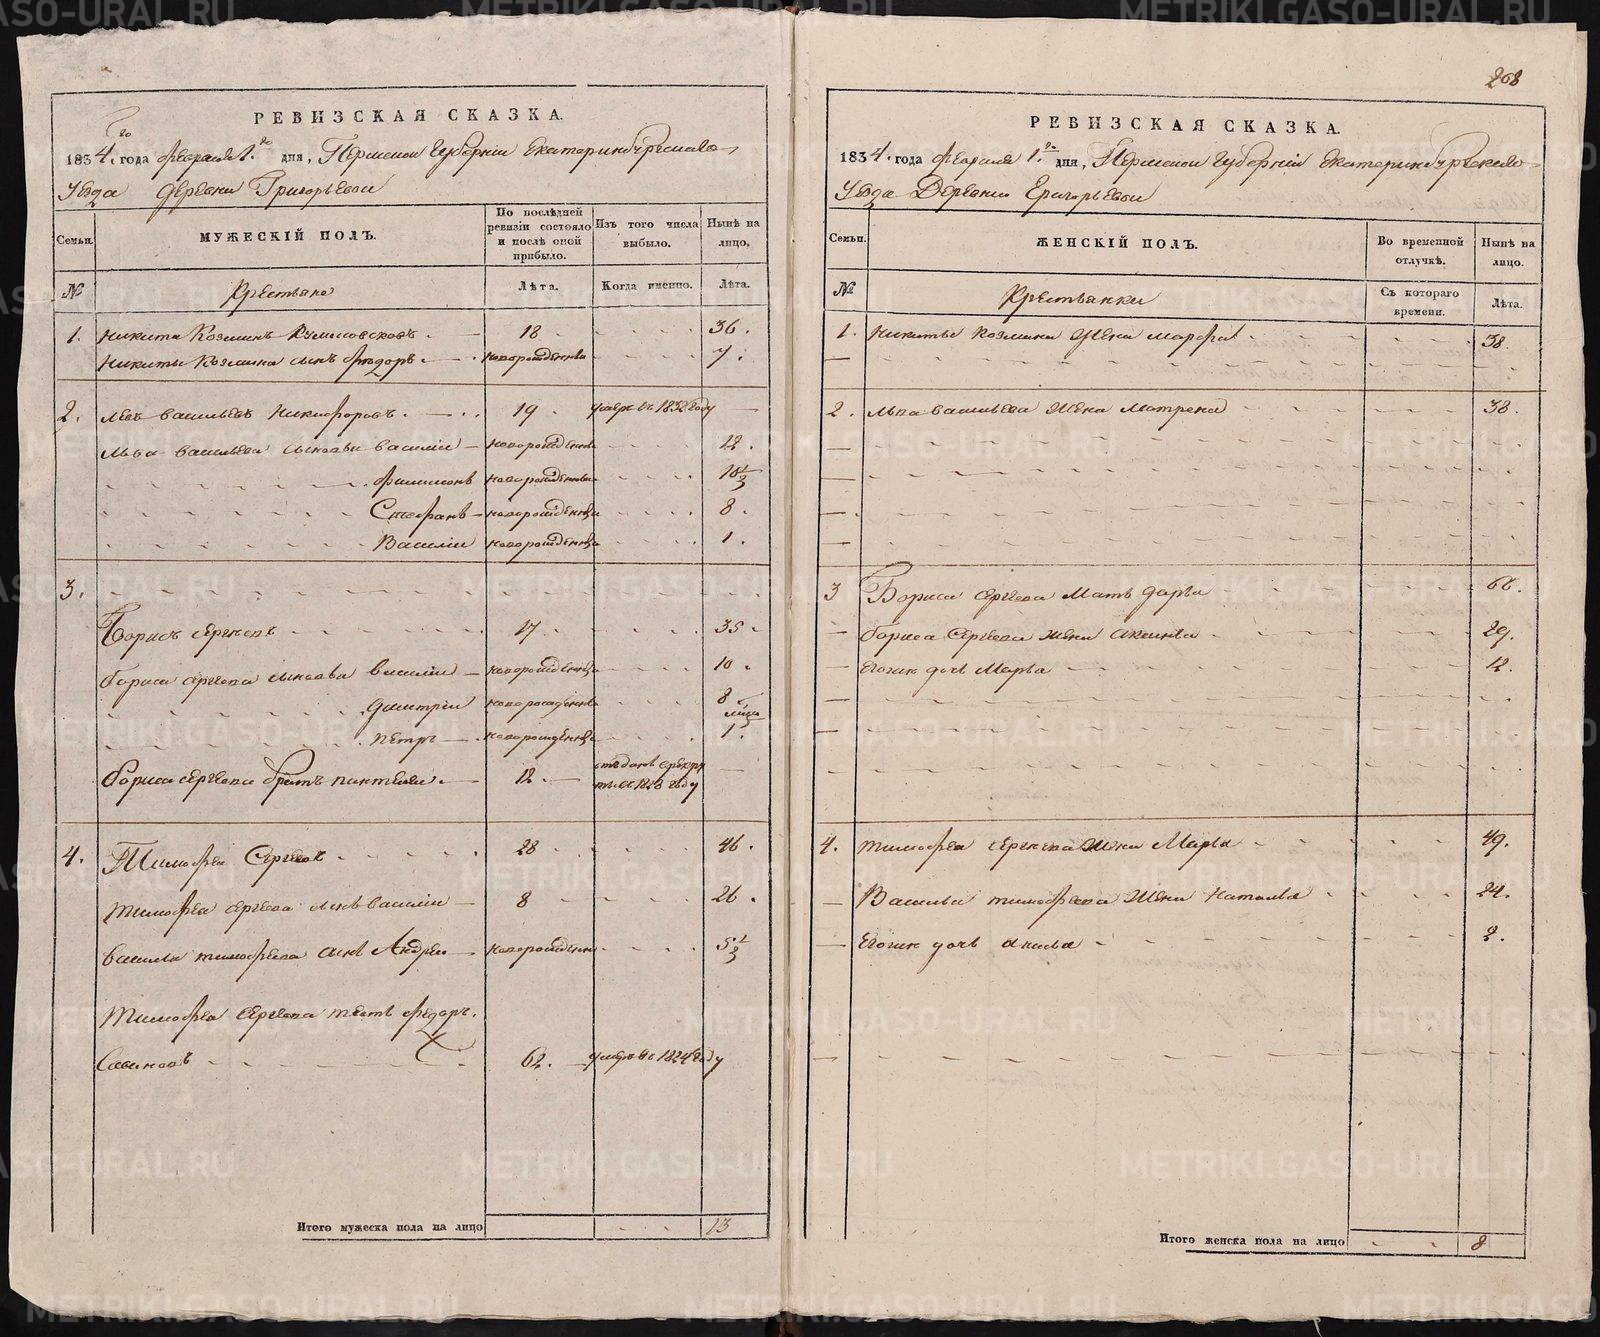 268
РЕВИЗСКАЯ СКАЗКА.
1834. года февраля 1.го дня, Пермской Губернiи Екатеринбургскаго
Уѣзда деревни Григорьевой
Семьи.
МУЖЕСКIЙ ПОЛЪ.
По послѣдней ревизiи состояло и послѣ оной прибыло.
Изъ того числа выбыло.
Нынѣ на лицо.
№
Крестьяне
Лѣта.
Когда именно.
Лѣта.
1. Никита Козминъ 18 36.
Никиты Козмина сынъ Федоръ новорожденны 7.
2. Левъ Васильевъ Никифоровъ. 19 умеръ въ 1832 году
Льва Васильева сыновьи Василiи новорожденны 12.
Филимонъ новорожденны 10 1/2
Стефанъ новорожденны 8.
Василiи новорожденны 1.
3.
Борисъ Сергѣевъ 17 35.
Бориса Сергѣева сыновьи Василiи новорожденны 10.
Димитрiи новорожденны 8
Петръ новорожденны 1.
Бориса Сергѣева братъ Пантелеи. 12. 1828 году
4. Тимофеи Сергѣевъ 28 46.
Тимофея Сергѣева сынъ Василiи 8 26.
Василья Тимофѣева сынъ Андреи новорожденны 5 1/2
Тимофея Сергѣева тесть Федоръ.
Савиновъ 62. умеръ въ 1824 году
Итого мужеска пола на лицо 13
РЕВИЗСКАЯ СКАЗКА.
1834. года февраля 1.го дня, Пермской Губернiи Екатеринбургскаго
Уѣзда Деревни Григорьевой
Семьи.
ЖЕНСКIЙ ПОЛЪ.
Во временной отлучкѣ.
Нынѣ на лицо.
№
Крестьянки
Съ котораго времени.
Лѣта.
1. Никиты Козмина жена Марфа 38.
2. Льва Васильева жена Матрена 38.
3 Бориса Сергѣева мать Дарья 66.
Бориса Сергѣева жена Аксинья 29.
Егожъ дочь Марья 12.
4. Тимофея Сергѣева жена Марья 49.
Василья Тимофѣева жена Наталья 24.
Егожъ дочь 2.
Итого женска пола на лицо 8
METRIKI.GASO-URAL.RU